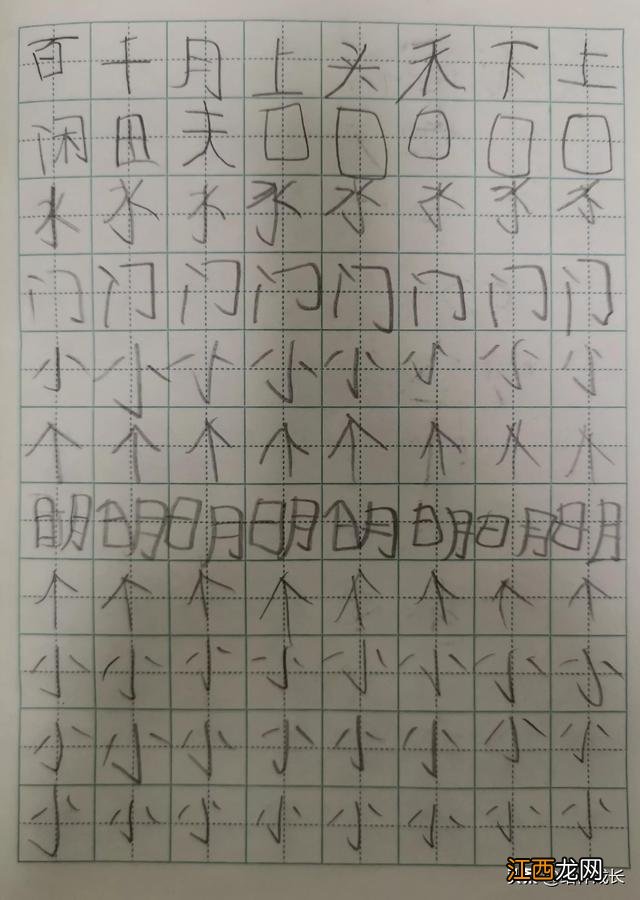 百十月上头禾下上
闲田夫口口口口口
水水水水水水水水
门门门门门门门门
小小小小小小小小
个个个个个个个个
明明明明明明明明
个个个个个个个个
小小小小小小小小
小小小小小小小小
小小小小小小小小
江西龙网